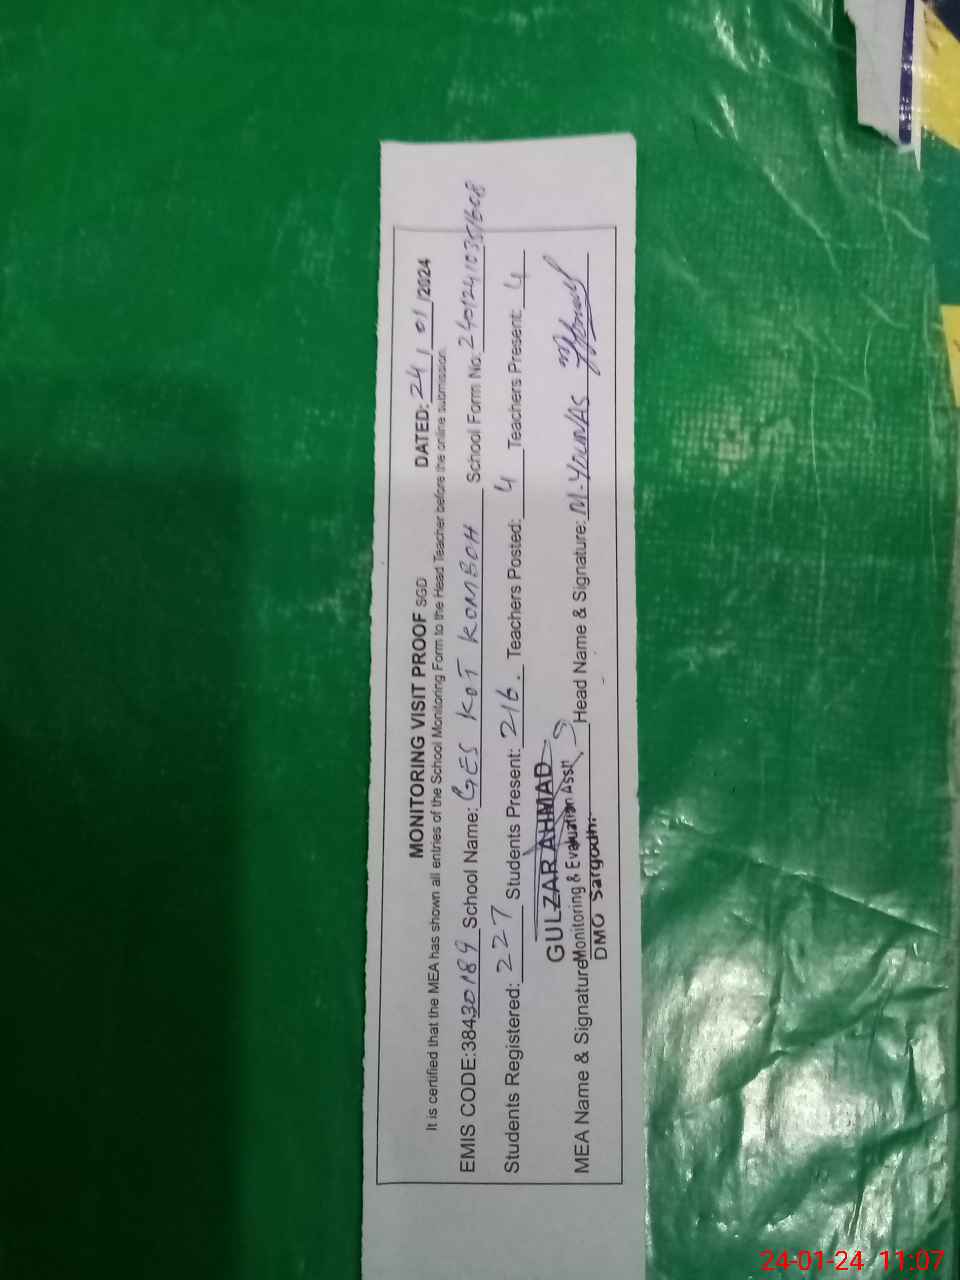 MONITORING VISIT PROOF SGD DATED: 24/01/2024
It is certified that the MEA has shown all entries of the School Monitoring Form to the Head Teacher before the online submission.
EMIS CODE:38430189 School Name: GES KOT KOMBOH School Form No:
Students Registered: 227 Students Present: 216. Teachers Posted: 4 Teachers Present: 4
GULZAR AHMAD
MEA Name & Signature Monitoring & Evaluation Asstt. Head Name & Signature: M-YOUNAS
DMO Sargodh
24-01-24 11:07